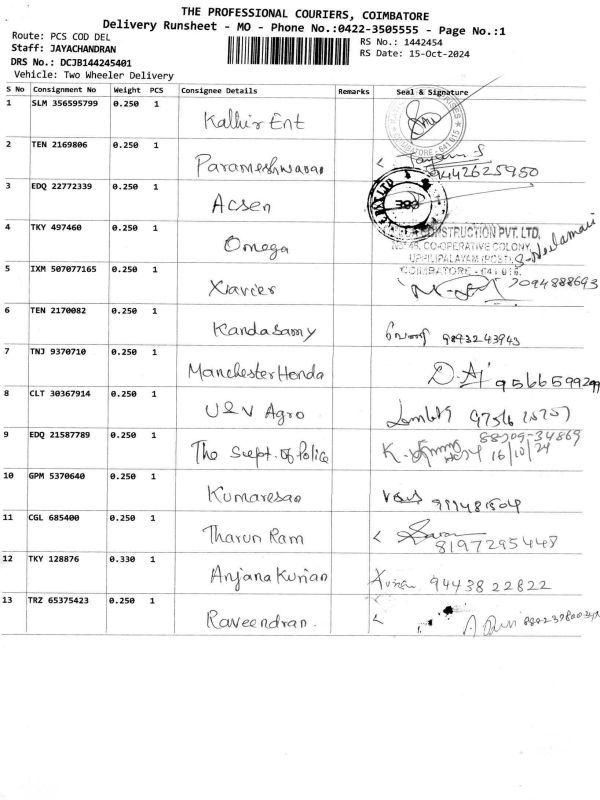 THE PROFESSIONAL COURIERS, COIMBATORE
Delivery Runsheet - MO - Phone No.:0422-3505555 - Page No.:1
Route: PCS COD DEL
RS No.: 1442454
Staff: JAYACHANDRAN
RS Date: 15-Oct-2024
DRS No.: DCJB144245401
Vehicle: Two Wheeler Delivery
S No Consignment No Weight PCS Consignee Details Remarks Seal & Signature
1 SLM 356595799 0.250 1
Kalhir Ent
COIMBATORE - 641 015
2 TEN 2169806 0.250 1
Parameshwaran
9442625950
3 EDQ 22772339 0.250 1
Acsen
4 TKY 497460 0.250 1
Omega
CONSTRUCTION PVT. LTD,
CO-OPERATIVE COLONY,
UPPILIPALAYAM (POST),
COIMBATORE - 641 015.
S. Neelamari
5 IXM 507077165 0.250 1
Xravier
7094888693
6 TEN 2170082 0.250 1
Kandasamy
9893243943
7 TNJ 9370710 0.250 1
Manchester Honda
9566599299
8 CLT 30367914 0.250 1
U&V Agro
9 EDQ 21587789 0.250 1
The Supt. of Police
88709-34869
16/10/24
10 GPM 5370640 0.250 1
Kumaresan
11 CGL 685400 0.250 1
Tharun Ram
8197295448
12 TKY 128876 0.330 1
Anjana Kurian
9443822822
13 TRZ 65375423 0.250 1
Raveendran.